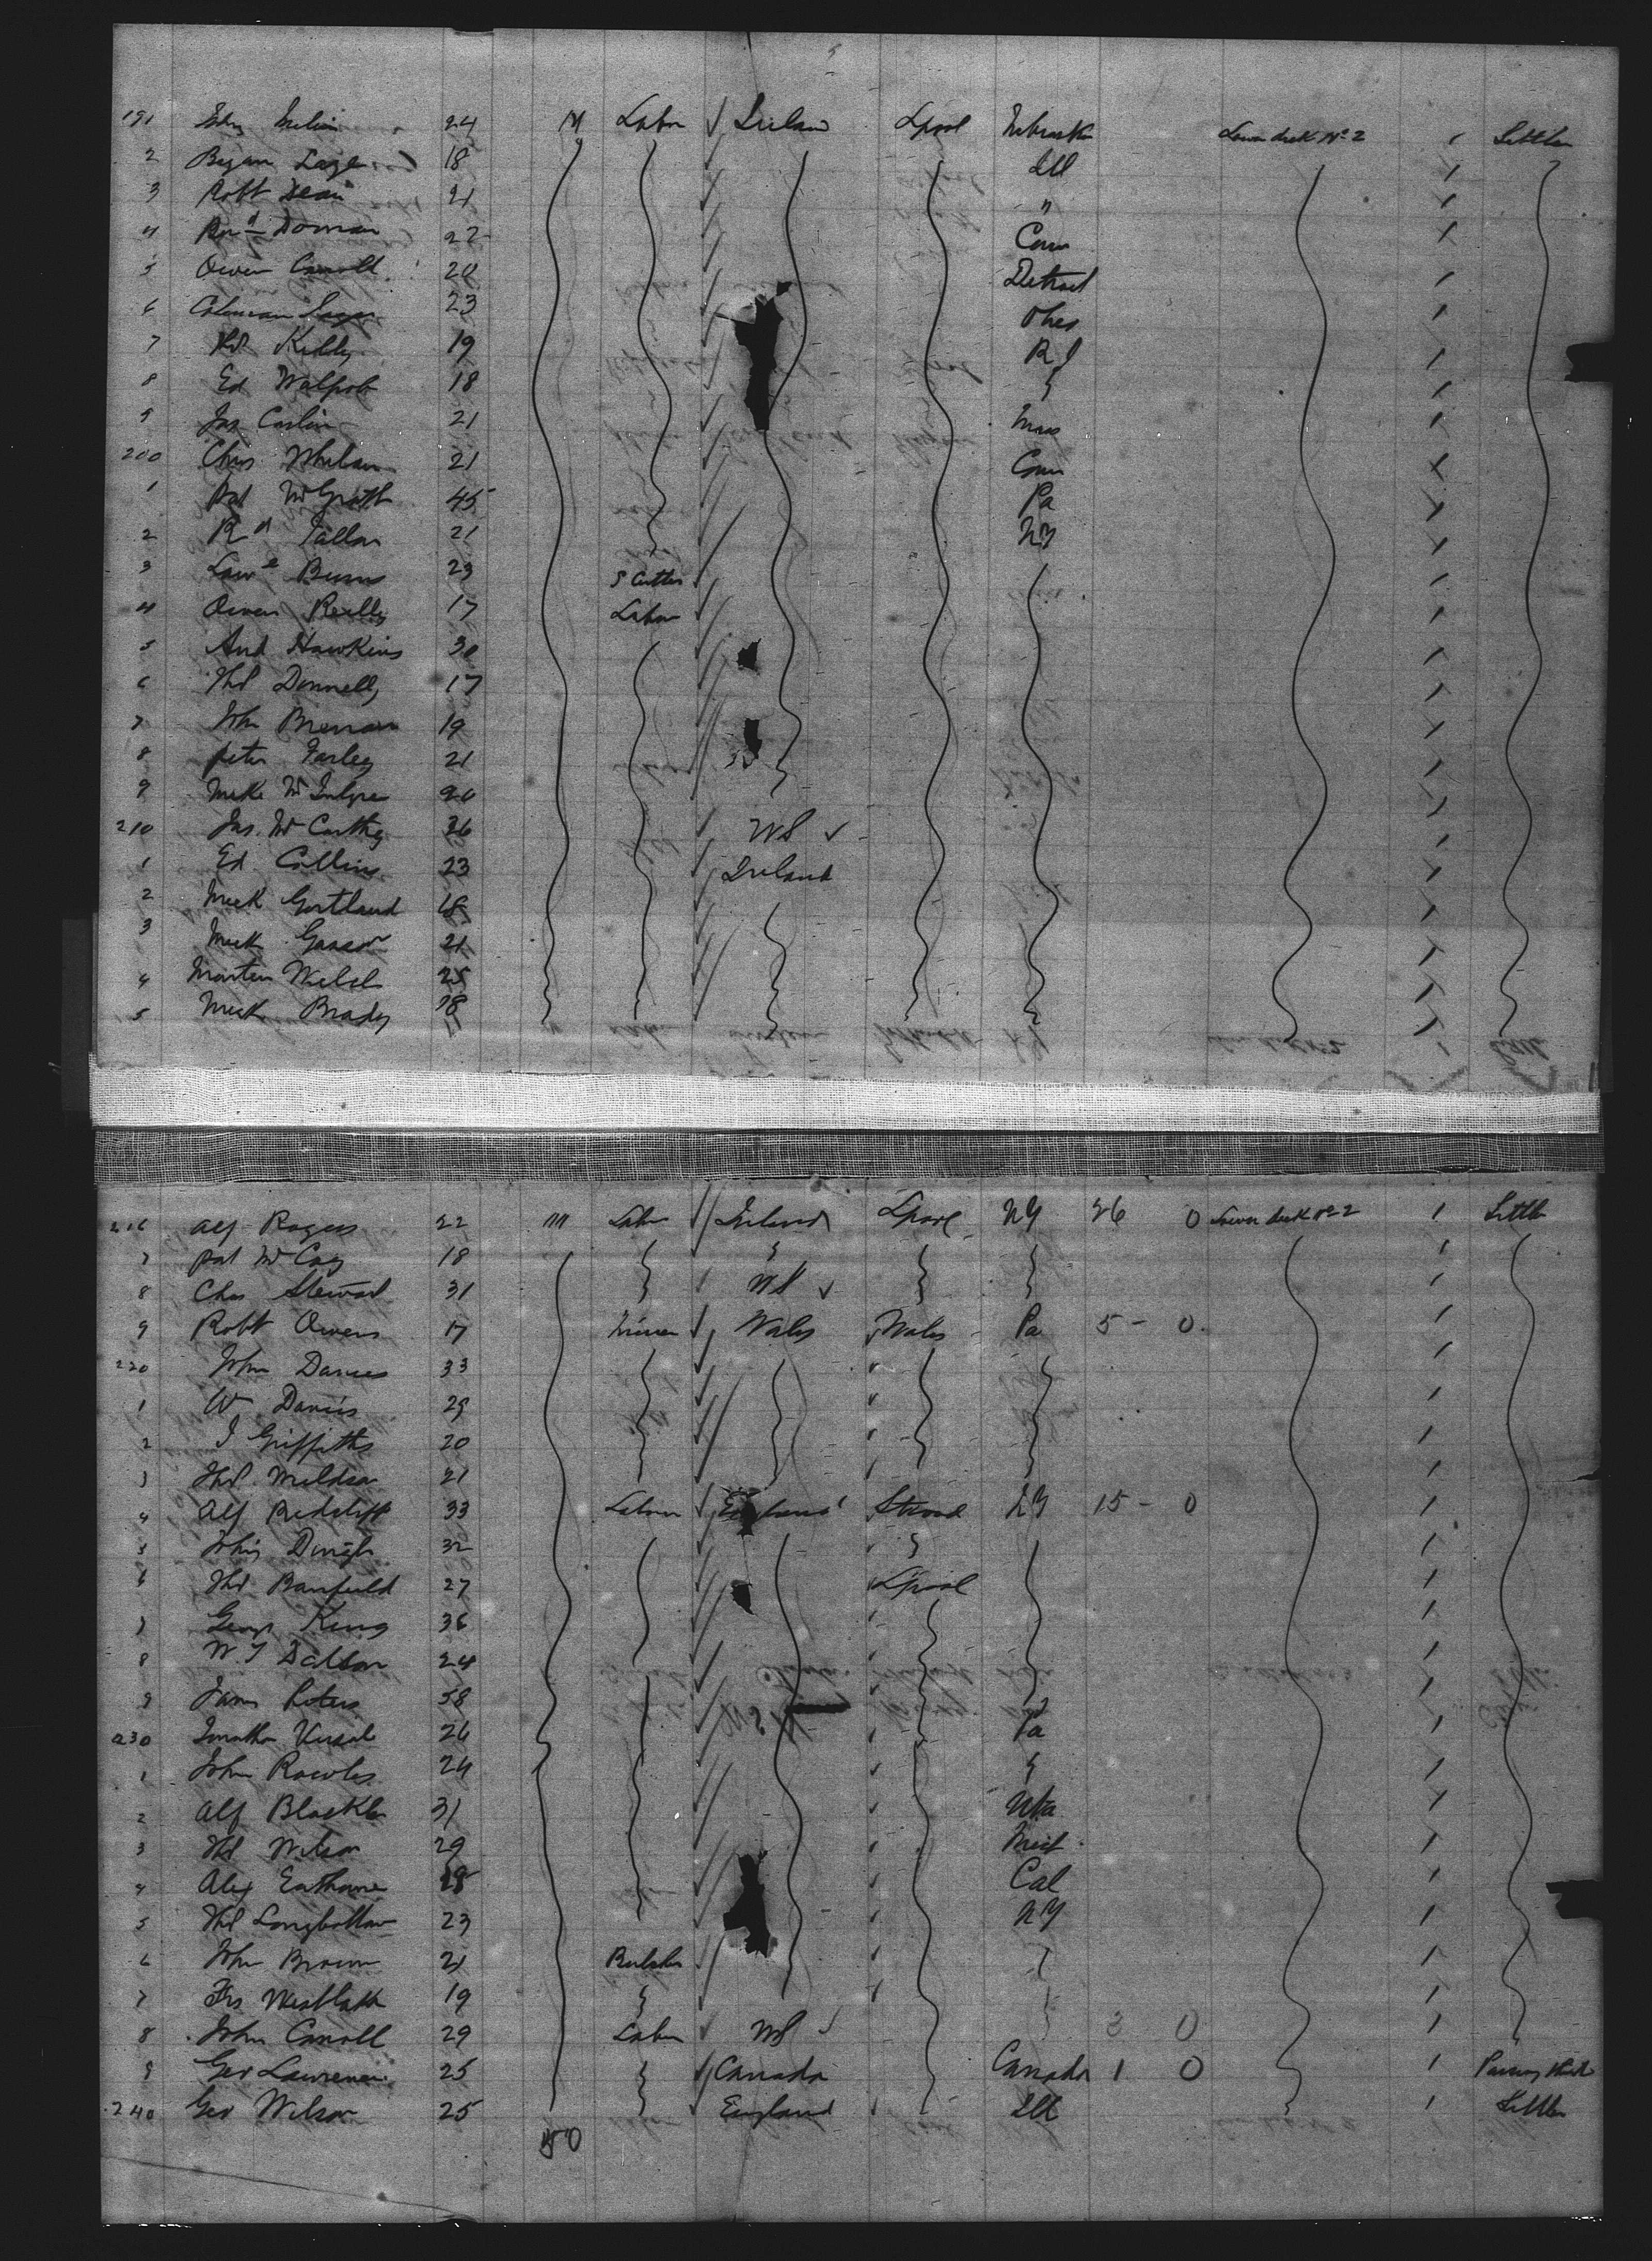 191 24 M Labor Ireland Lpool Nebraska Lower deck No 2 1 Settler
2 18 Ill 1
3 Robt Dean 21 " 1
4 Bnd Dornan 22 Conn 1
5 Owen Carroll 20 Detroit 1
6 Coleman 23 Ohio 1
7 Thos Kelly 19 R I 1
8 Ed Walpole 18 1
9 Jas Carlin 21 Mass 1
200 Chris Whelan 21 Conn 1
1 Pat McGrath 45 Pa 1
2 Rd Fallon 21 NY 1
3 Lawce Burns 23 S Cutter 1
4 Owen Reilly 17 Labor 1
5 And Hawkins 30 1
6 Thos Donnelly 17 1
7 John Brennan 19 1
8 Peter Farley 21 1
9 1
210 Jas McCarthy 26 US 1
1 Ed Collins 23 Ireland 1
2 Mick Gortland 18 1
3 Mick 21 1
4 Marten Welch 25 1
5 Mick Brady 18 1
216 Alf Rogers 22 M Labor Ireland Lpool NY 26 0 Lower deck No 2 1 Settler
7 Pat McCay 18 1
8 Chas Steward 31 US 1
9 Robt Owens 17 Miner Wales Wales Pa 5 - 0 1
220 John Davies 33 1
1 W Davies 29 1
2 J Griffiths 20 1
3 Thos 21 1
4 Alf Redcliff 33 Labour England NY 15 - 0 1
5 32 1
6 Thos Banfield 27 Lpool 1
7 George King 36 1
8 W J Dalton 24 1
9 James Peters 38 1
230 Jonathan 26 Pa 1
1 John Rowles 24 1
2 Alf 31 1
3 Thos Wilson 29 Mich 1
4 Alex Cal 1
5 Thos Longbottom 23 NY 1
6 John Brown 21 Butcher 1
7 Frs Westlake 19 1
8 John Carroll 29 Labor US 3 0 1
9 Geo Lawrence 25 Canada Canada 1 0 1
240 Geo Wilson 25 England Ill 1 Settler
50